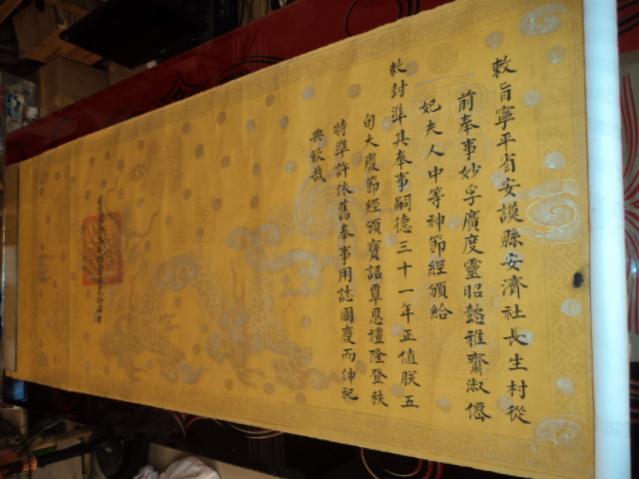 敕旨寧平省安謨縣安濟社長生村從
前奉事妙孚廣度靈昭懿雅齋淑
妃夫人中等神節經頒給
敕封準其奉事嗣德三十一年正值朕五
旬大慶節經頒寶詔覃恩禮隆登秩
特準許依舊奉事用誌國慶而伸祀
典欽哉